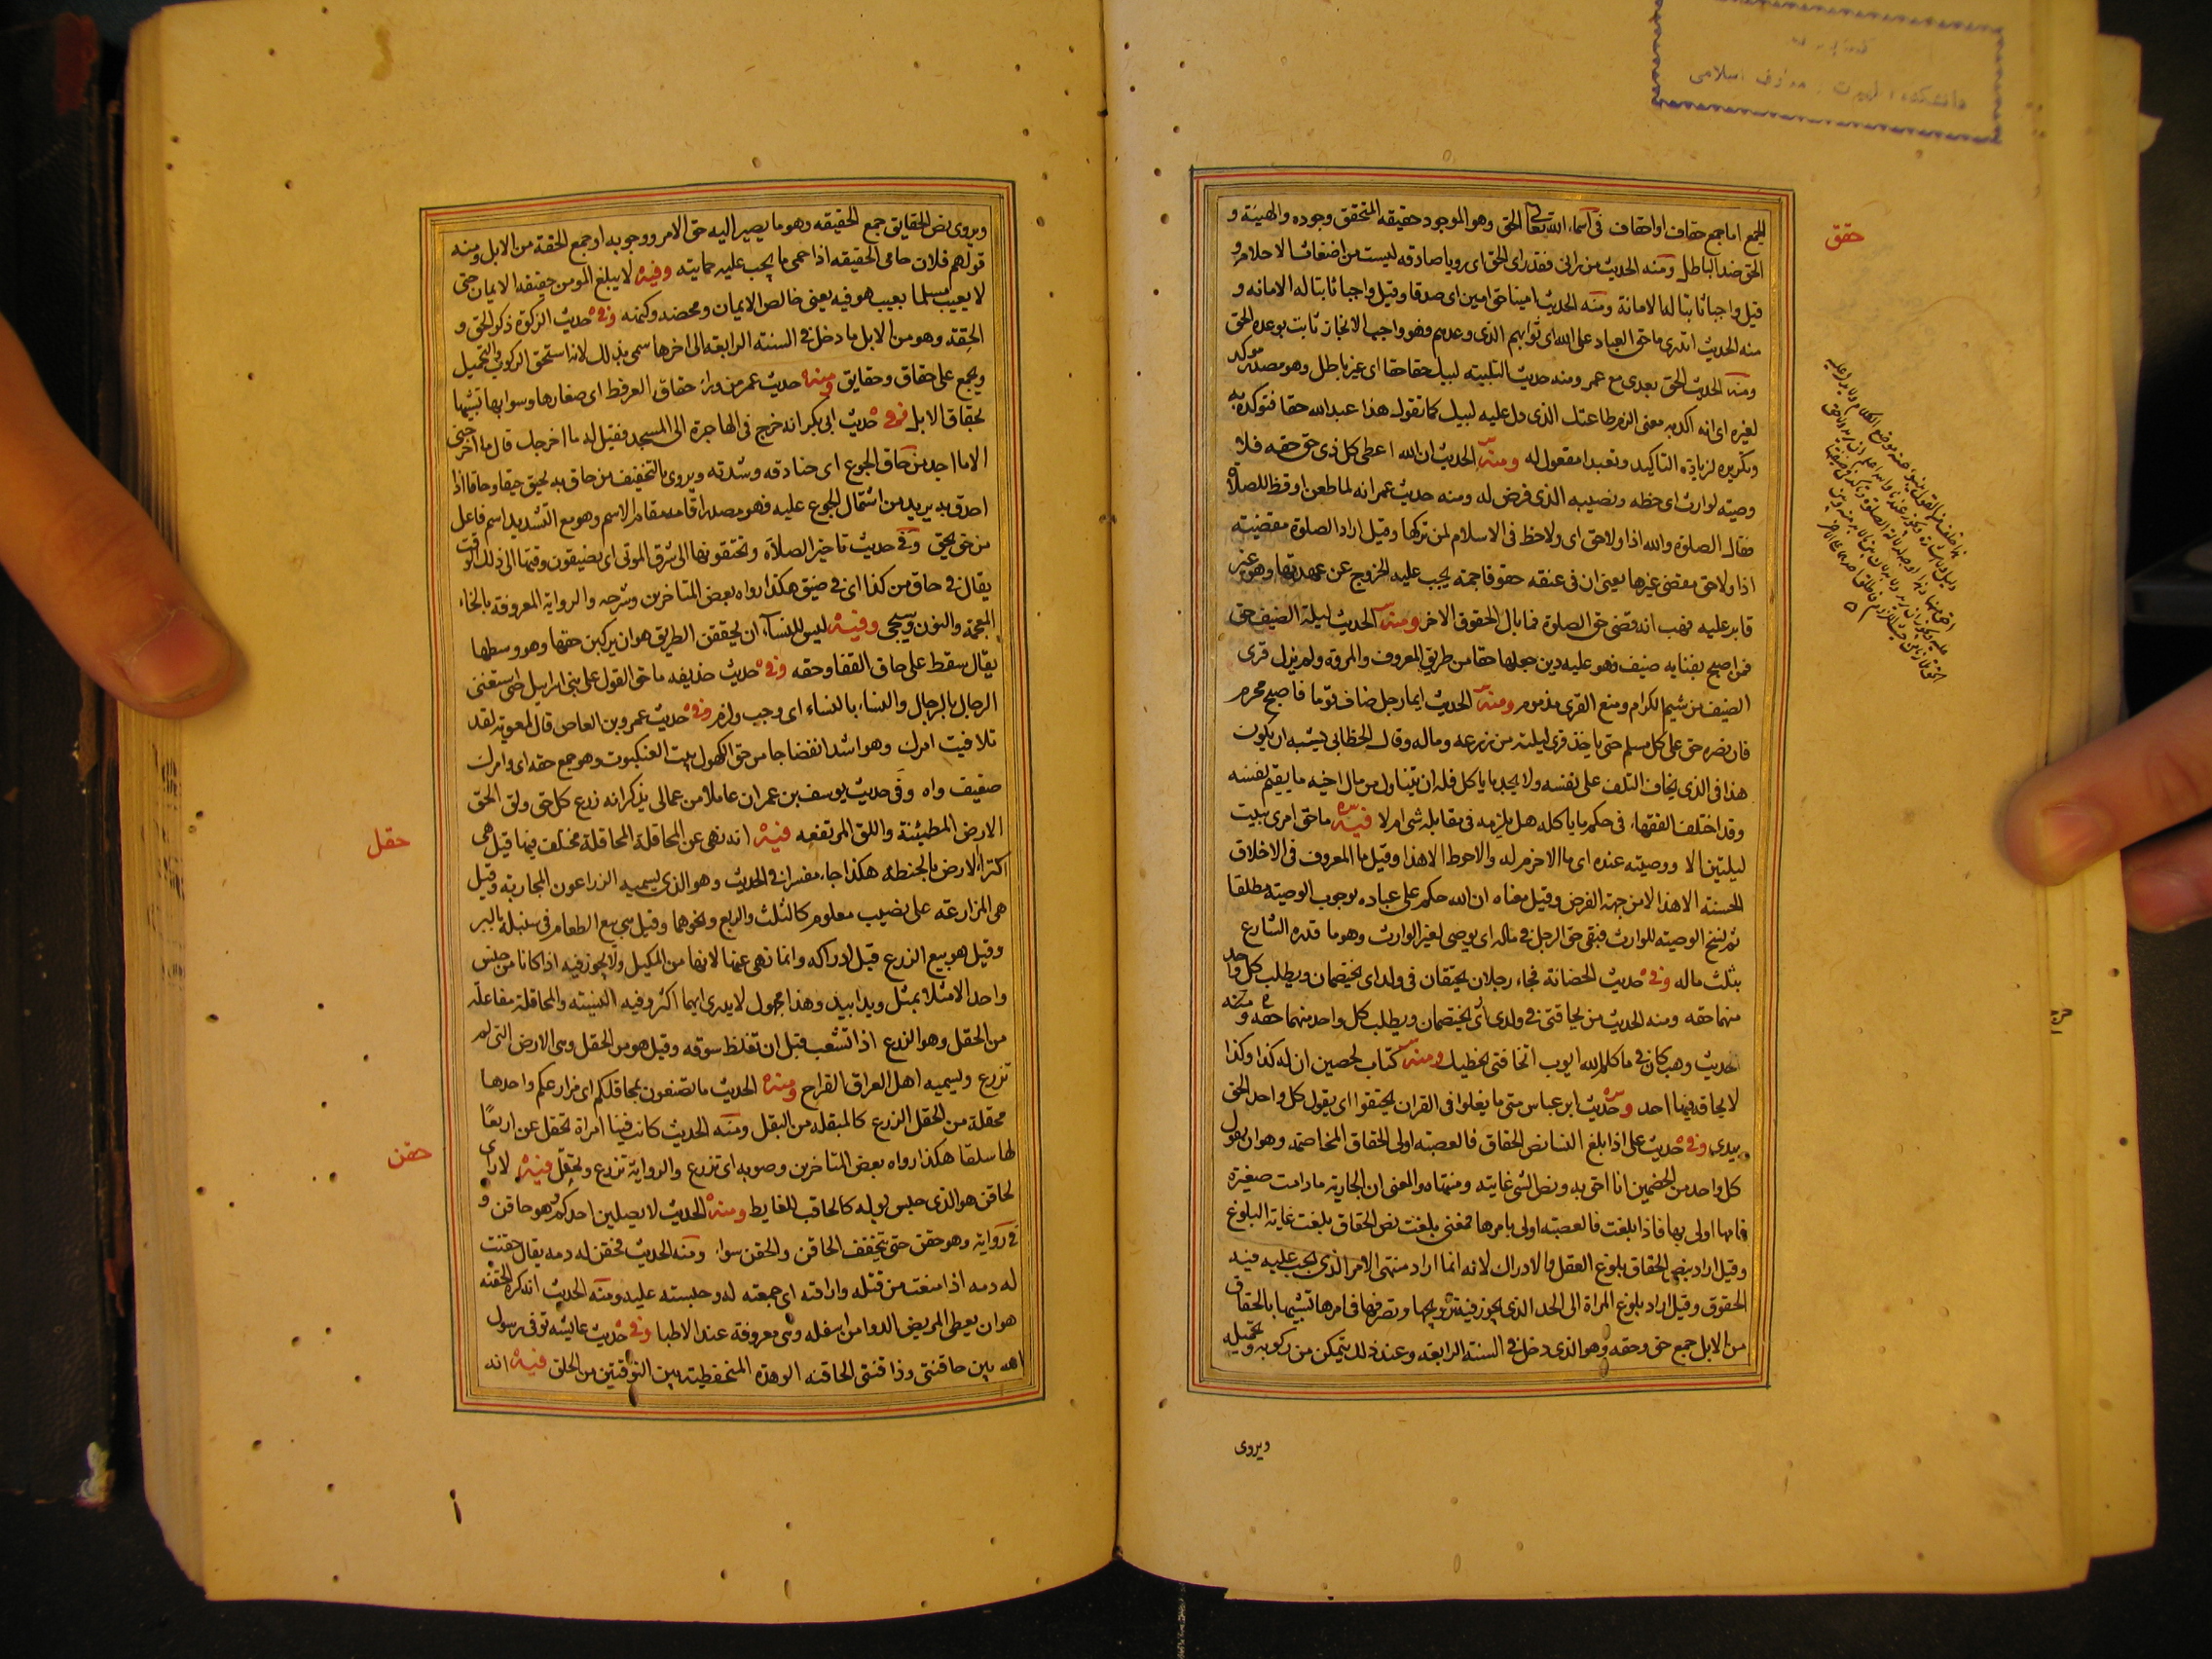 حقق
الجمع اما جمع حقاف او احقاف في اسماء الله تعالى الحق وهو الموجود حقيقه المتحقق وجوده والهيته و
الحق ضد الباطل ومنه الحديث من راني فقد راى الحق اى رويا صادقه ليست من اضغاث الاحلام و
قيل واجبا ثابتا له الامانة ومنه الحديث امينا حق امين اى صدقا وقيل واجبا ثابتا له الامانه و
منه الحديث اتدرى ما حق العباد على الله اى ثوابهم الذى وعدهم فهو واجب الانجاز ثابت بوعده الحق
ومنه الحديث الحق بعدى مع عمر ومنه حديث التلبيته لبيك حقا حقا اى غير باطل وهو مصدر موكد
لغيره اى انه اكد به معنى الزم طاعتك الذى دل عليه لبيك كما تقول هذا عبد الله حقا فتوكده به
وتكريره لزيادة التاكيد وتعبدا مفعول له ومنه الحديث ان الله اعطى كل ذى حق حقه فلا
وصيته لوارث اى حظه ونصيبه الذى فرض له ومنه حديث عمر انه لما طعن اوقظ للصلاة
فقال الصلوة والله اذا ولا حق اى ولا حظ في الاسلام لمن تركها وقيل اراد الصلوة مقضيته
اذا ولا حق مقضى غيرها يعنى ان في عنقه حقوقا جمة يجب عليه الخروج عن عهدتها وهو غير
قادر عليه فهب انه قضى حق الصلوة فما بال الحقوق الاخر ومنه الحديث ليلة الضيف حق
فمن اصبح بفنايه ضيف فهو عليه دين جعلها حقا من طريق المعروف والمروة ولم يزل قرى
الضيف من شيم الكرام ومنع القرى مذموم ومنه الحديث ايما رجل ضاف قوما فاصبح محرم
فان نصره حق على كل مسلم حتى ياخذ قرى ليلته من زرعه وماله وقال الخطابى يشبه ان يكون
هذا في الذى يخاف التلف على نفسه ولا يجد ما ياكل فله ان يتناول من مال اخيه ما يقيم نفسه
وقد اختلف الفقهاء في حكم ما ياكله هل يلزمه في مقابله شى ام لا فيه ما حق امرى يبيت
ليلتين الا ووصيته عنده اى ما الاحزم له والاحوط الا هذا وقيل ما المعروف في الاخلاق
الحسنه الا هذا لا من جهة الفرض وقيل معناه ان الله حكم على عباده بوجوب الوصيته مطلقا
ثم نسخ الوصيته للوارث فبقى حق الرجل في ماله اى يوصى لغير الوارث وهو ما قدره الشارع
بثلث ماله وفى حديث الحضانة فجاء رجلان يحتقان في ولد اى يختصمان ويطلب كل واحد
منهما حقه ومنه الحديث من يحاقنى في ولدى اى يختصمان ويطلب كل واحد منهما حقه ومنه
الحديث وهب كان في ما كلم الله ايوب اتحاقنى بخطيك ومنه كتاب لحصين ان له كذا وكذا
لا يحاقه فيها احد وحديث ابن عباس متى ما يغلوا في القران يحتقوا اى يقول كل واحد الحق
بيدى وفى حديث على اذا بلغ النسا نص الحقاق فالعصبته اولى الحقاق المخاصمه وهو ان يقول
كل واحد من الخصمين انا احق به ونص الشى غايته ومنتهاه والمعنى ان الجاريه ما دامت صغيرة
فامها اولى بها فاذا بلغت فالعصبته اولى بامرها فمعنى بلغت نص الحقاق بلغت غاية البلوغ
وقيل اراد بنص الحقاق بلوغ العقل والادراك لانه انما اراد منتهى الامر الذى يجب عليه فيه
الحقوق وقيل اراد بلوغ المراة الى الحد الذى يجوز فيه تزويجها وتصرفها في امرها تشبيها بالحقاق
من الابل جمع حق وحقه وهو الذى دخل في السنة الرابعه وعند ذلك يتمكن من ركوبه وتحميله
ويروى
ويروى نص الحقايق جمع الحقيقه وهو ما يصير اليه حق الامر ووجوبه او جمع الحقة من الابل ومنه
قولهم فلان حامى الحقيقه اذا حمى ما يجب عليه حمايته وفيه لا يبلغ المومن حقيقه الايمان حتى
لا يعيب مسلما بعيب هو فيه يعنى خالص الايمان ومحضه وكنهه وفى حديث الزكوة ذكر الحق و
الحقة وهو من الابل ما دخل في السنته الرابعه الى اخرها سمى بذلك لانه استحق الركوب والتحميل
ويجمع على حقاق وحقايق ومنه حديث عمر من وراء حقاق العرفط اى صغارها وشوابها تشبيها
بحقاق الابل وفى حديث ابى بكر انه خرج في الهاجرة الى المسجد فقيل له ما اخرجك قال ما اخرجنى
الا ما اجد من حاق الجوع اى صادقه وشدته ويروى بالتخفيف من حاق به يحيق حيقا وحاقا اذا
احدق به يريد من اشتمال الجوع عليه فهو مصدر اقامه مقام الاسم وهو مع التشديد اسم فاعل
من حق يحق وفى حديث تاخير الصلاة وتحتقونها الى شرق الموتى اى تضيقون وقتها الى ذلك الوقت
يقال في حاق من كذا اى في ضيق هكذا رواه بعض المتاخرين وشرحه والرواية المعروفة بالخاء
المعجمة والنون وسيجى وفيه ليس للنساء ان يحققن الطريق هو ان يركبن حقها وهو وسطها
يقال سقط على حاق القفا وحقه وفى حديث حذيفه ما حق القول على بنى اسرايل حتى استغنى
الرجال بالرجال والنساء بالنساء اى وجب ولزم وفى حديث عمرو بن العاص قال لمعوية لقد
تلافيت امرك وهو اشد انفضاجا من حق الكهول بيت العنكبوت وهو جمع حقه اى وامرك
ضعيف واه وفى حديث يوسف بن عمر ان عاملا من عمالى يذكر انه زرع كل حق ولق الحق
حقل
الارض المطمئنة واللق المرتفعه فيه انه نهى عن المحاقلة المحاقلة مختلف فيها قيل هى
اكتراء الارض بالحنطه هكذا جاء مفسرا في الحديث وهو الذى يسميه الزراعون المحاربه وقيل
هى المزارعة على نصيب معلوم كالثلث والربع ونحوهما وقيل هى بيع الطعام في سنبله بالبر
وقيل هو بيع الزرع قبل ادراكه وانما نهى عنها لانها من المكيل ولا يجوز فيه اذا كانا من جنس
واحد الا مثلا بمثل ويدا بيد وهذا مجهول لا يدرى ايهما اكثر وفيه النسيئته والمحاقلة مفاعلة
من الحقل وهو الزرع اذا تشعب قبل ان تغلظ سوقه وقيل هو من الحقل وهى الارض التى لم
تزرع ويسميه اهل العراق القراح ومنه الحديث ما تصنعون بمحاقلكم اى مزارعكم واحدها
محقلة من الحقل الزرع كالمبقله من البقل ومنه الحديث كانت فينا امراة تحقل عن اربعا
حقن
لها سلقا هكذا رواه بعض المتاخرين وصوبه اى تزرع والرواية تزرع وتحقل فيه لا راى
لحاقن هو الذى حبس بوله كالحاقب للغايط ومنه الحديث لا يصلين احدكم وهو حاقن و
في رواية وهو حقن حتى يتخفف الحاقن والحقن سواء ومنه الحديث فحقن له دمه يقال حقنت
له دمه اذا منعت من قتله واراقته اى جمعته له وحبسته عليه ومنه الحديث انه كره الحقنه
هو ان يعطى المريض الدوا من اسفله وهى معروفة عند الاطبا وفى حديث عايشه توفى رسول
الله بين حاقنتى وذاقنتى الحاقنه الوهدة المنخفضة بين الترقوتين من الحلق فيه انه